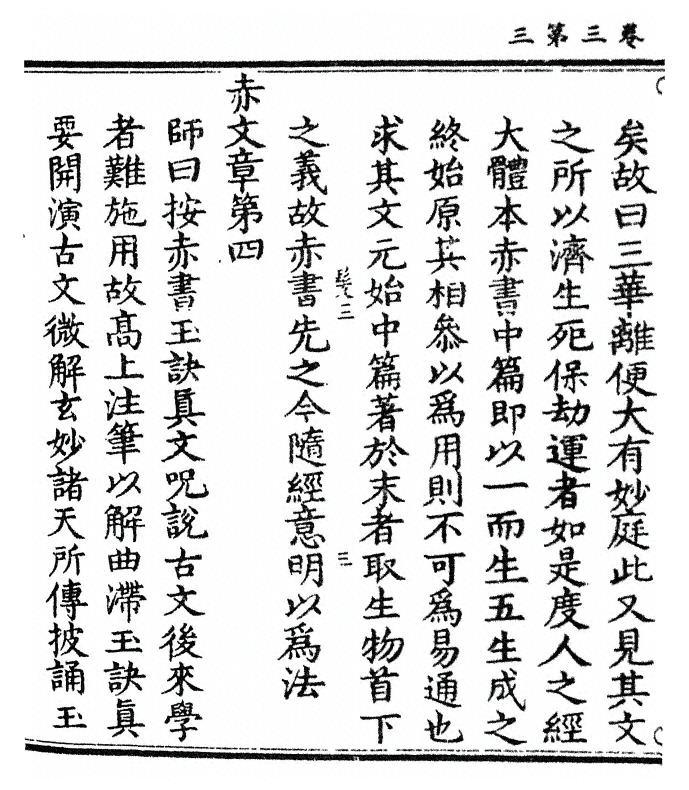 卷三第三
矣故曰三華離便大有妙庭此又見其文
之所以濟生死保劫運者如是度人之經
大體本赤書中篇即以一而生五生成之
終始原其相叅以爲用則不可爲易通也
求其文元始中篇著於末者取生物首下
三 三
之義故赤書先之今隨經意明以爲法
赤文章第四
師曰按赤書玉訣眞文呪說古文後來學
者難施用故高上注筆以解曲滯玉訣眞
要開演古文微解玄妙諸天所傳披誦玉